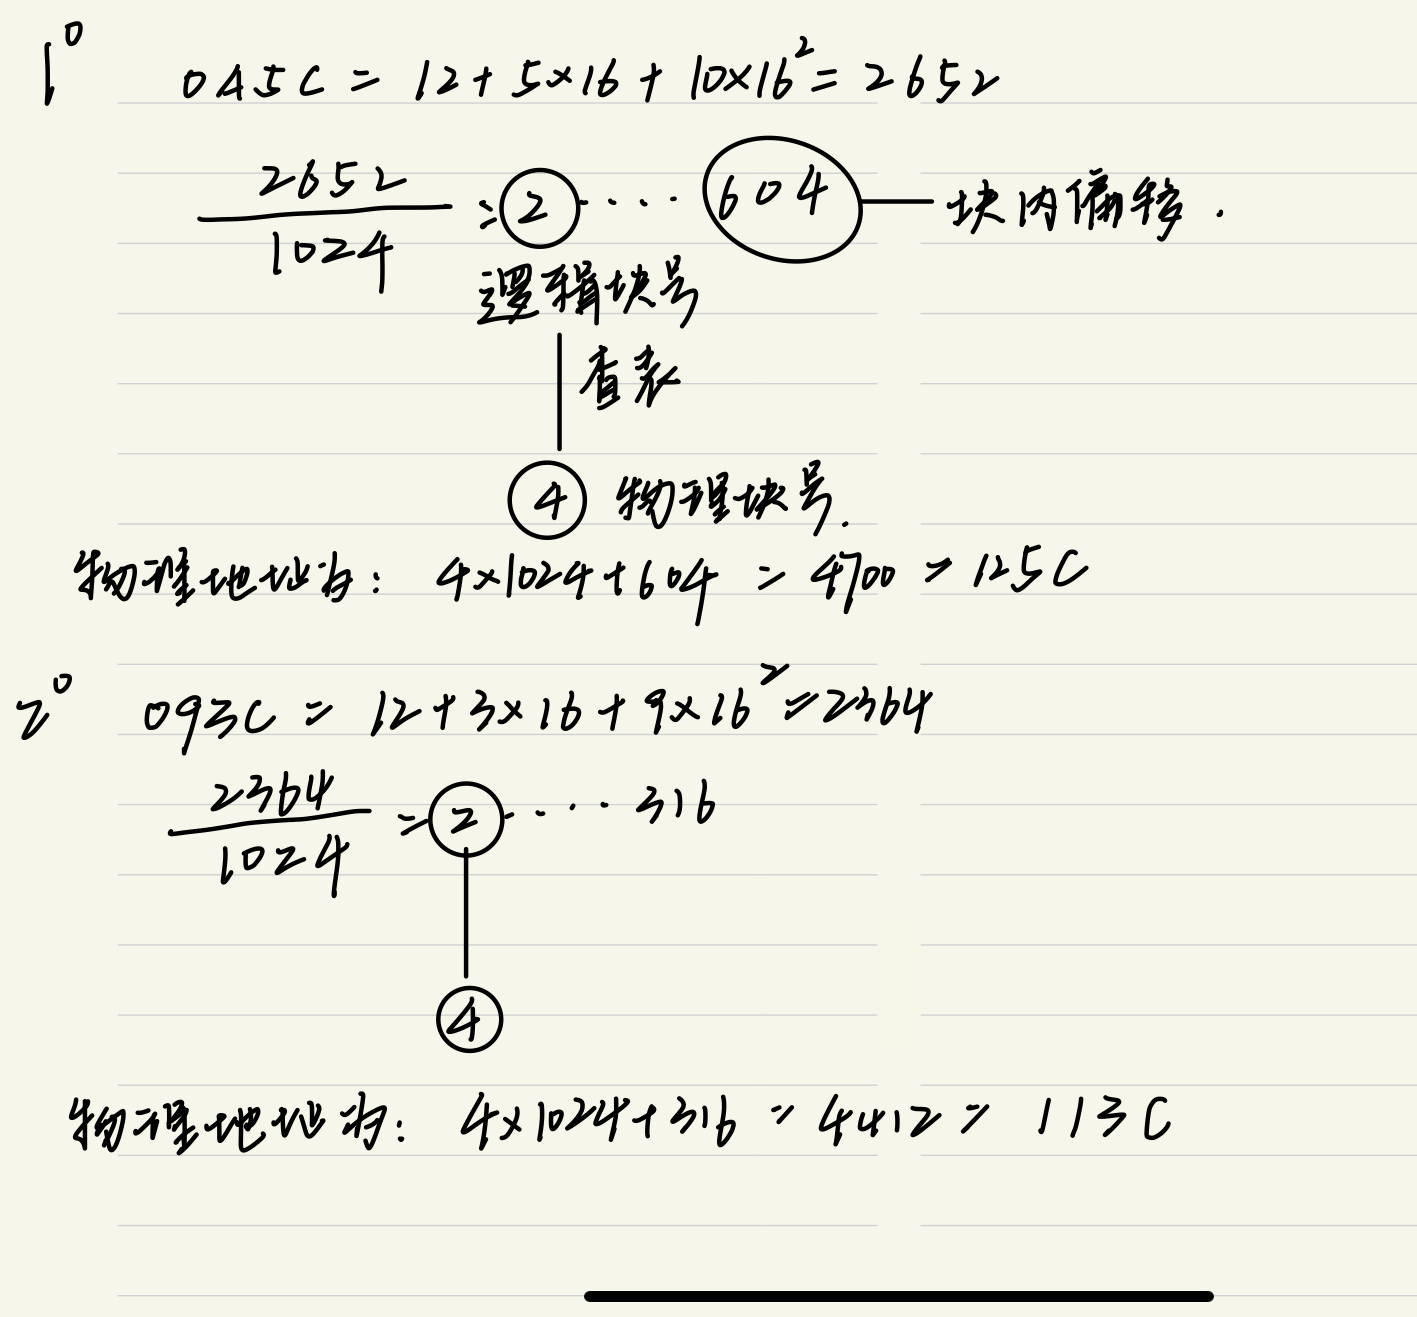 1⁰ 0A5C = 12 + 5×16 + 10×16² = 2652
2652/1024 = 2 ····· 604 — 块内偏移.
逻辑块号
查表
4 物理块号.
物理地址为: 4×1024+604 = 4700 = 125C
2⁰ 093C = 12+3×16+9×16² = 2364
2364/1024 = 2 ····· 316
4
物理地址为: 4×1024+316 = 4412 = 113C